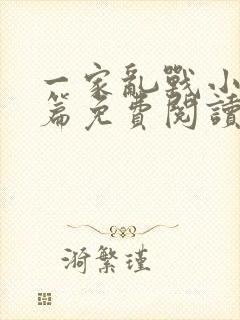 一家亂戰小
篇免費閱讀
漪繁瑾